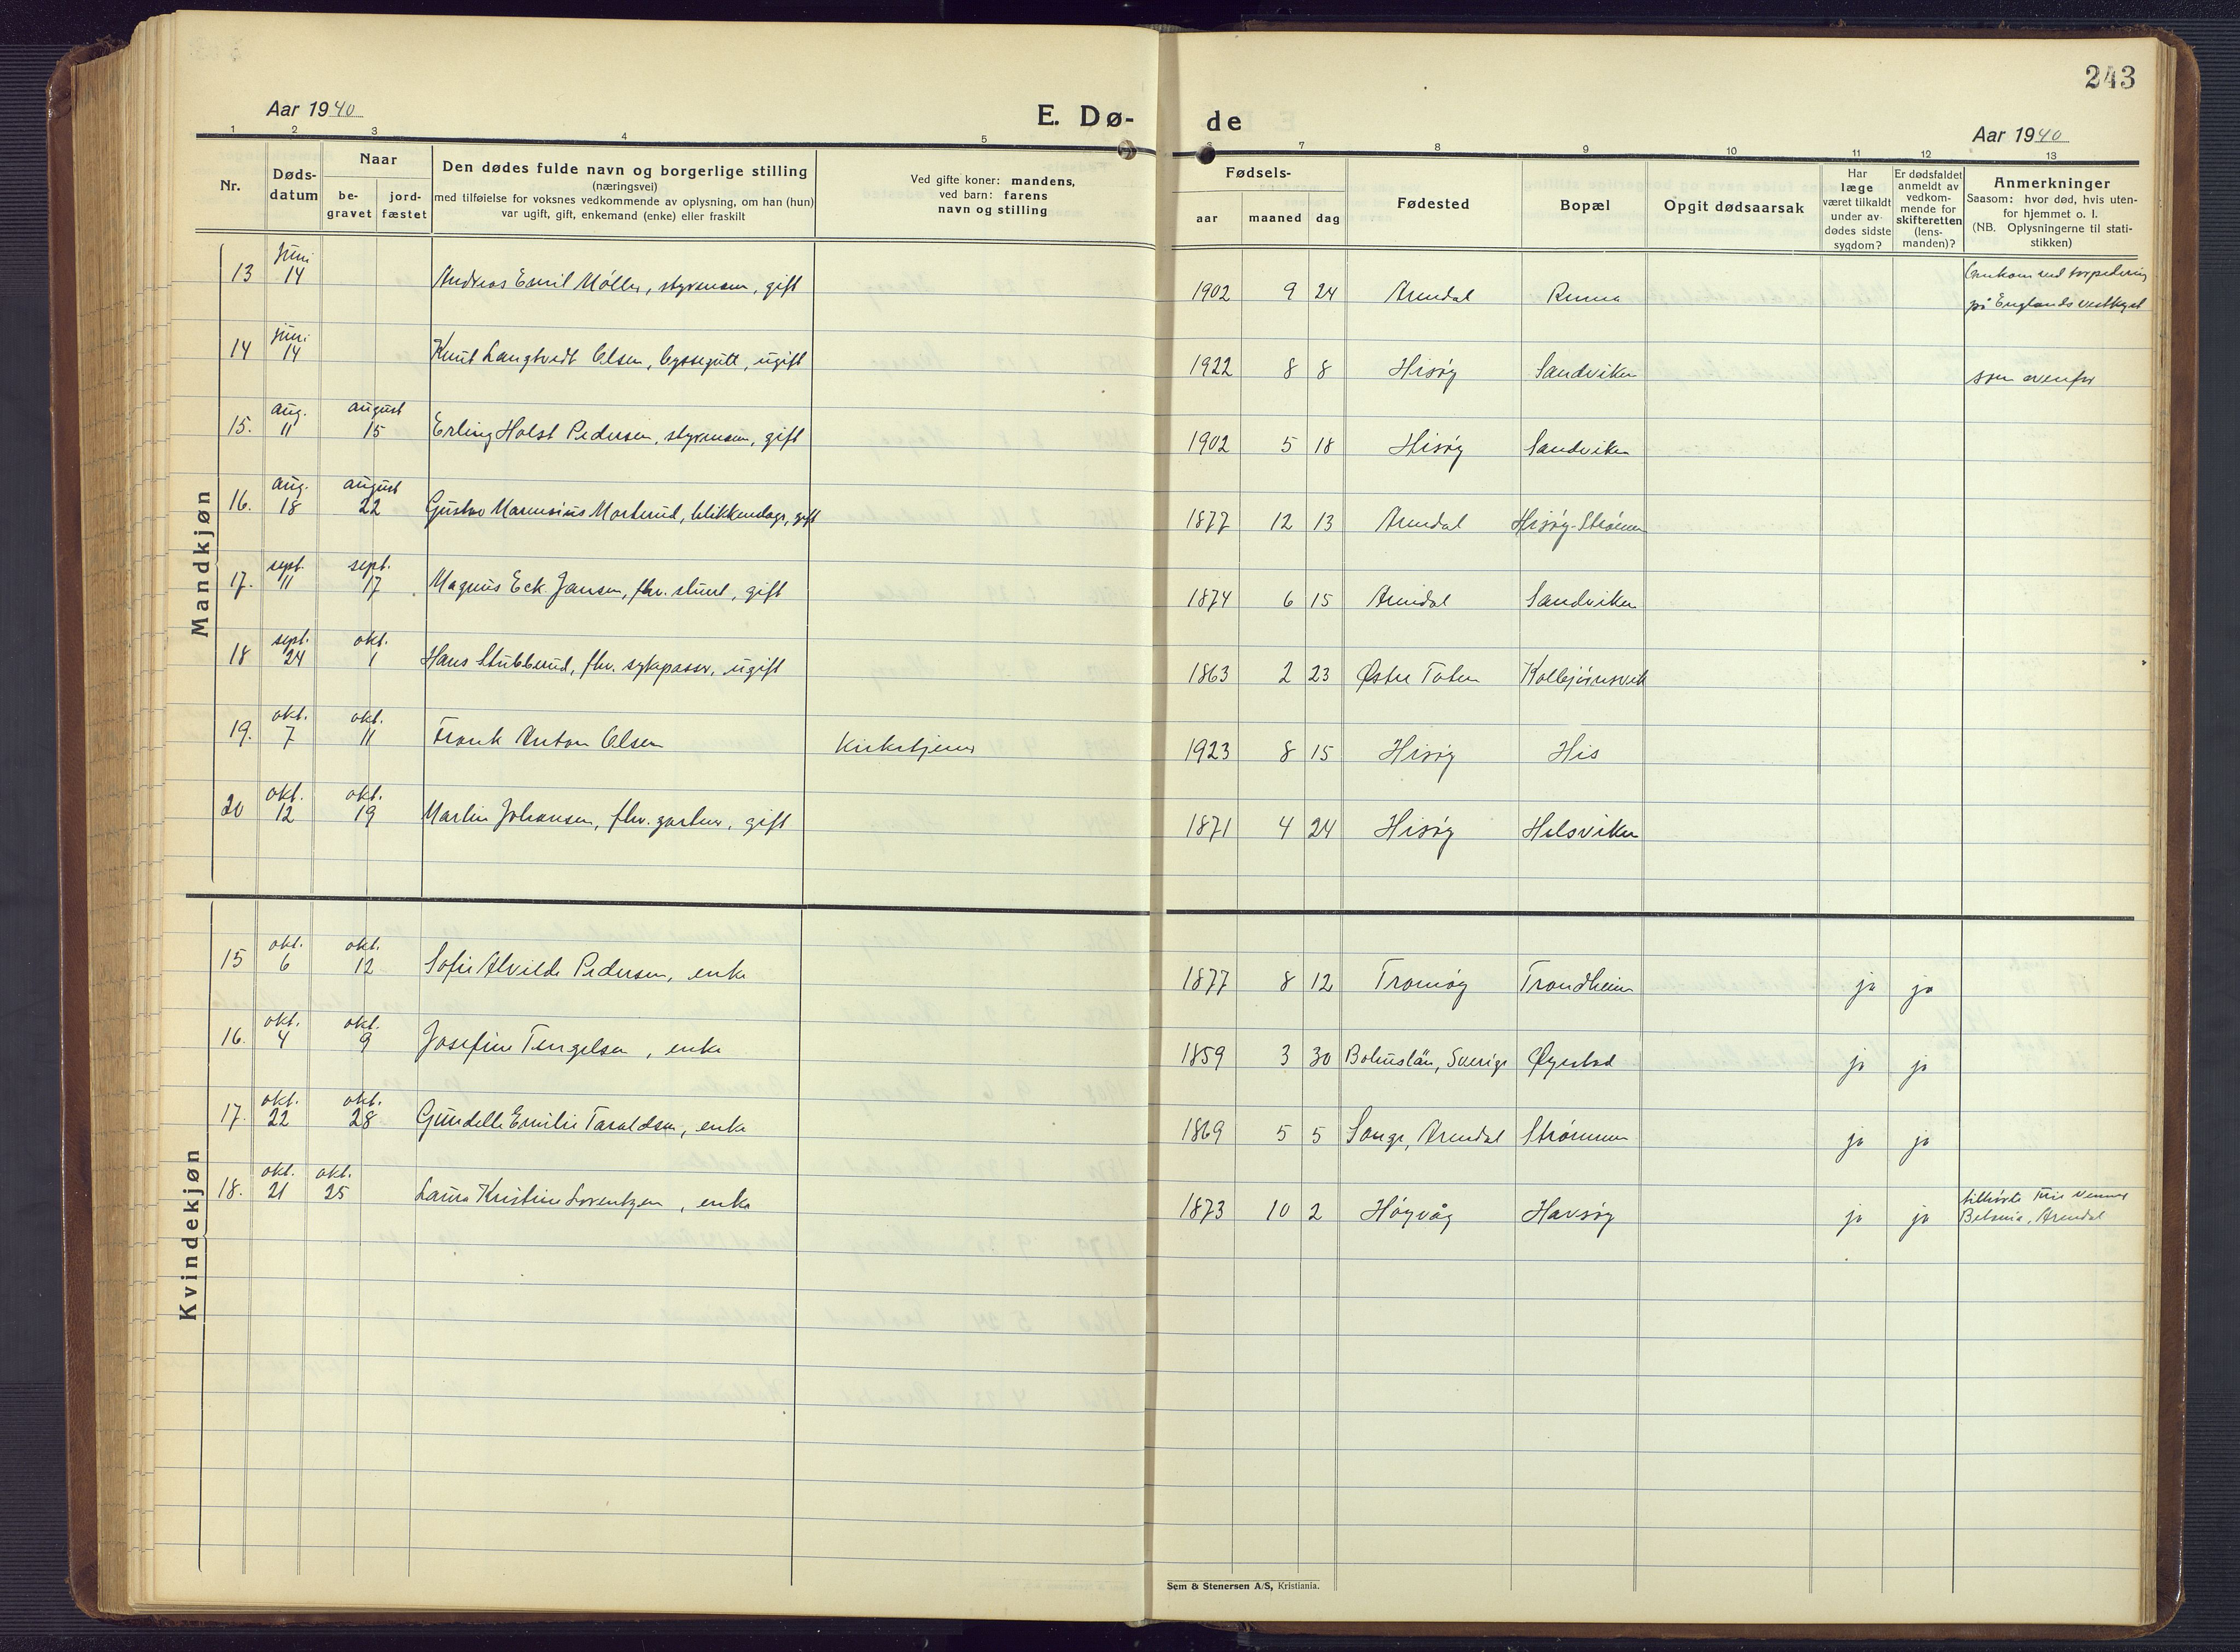 243
Aar 1940
E. Dø-
de
Aar 1940
1 2 3 4 5 6 7 8 9 10 11 12 13
Nr.
Døds-
datum
Naar
be-
gravet
jord-
fæstet
Den dødes fulde navn og borgerlige stilling
(næringsvei)
med tilføielse for voksnes vedkommende av oplysning, om han (hun)
var ugift, gift, enkemand (enke) eller fraskilt
Ved gifte koner: mandens,
ved barn: farens
navn og stilling
Fødsels-
aar maaned dag
Fødested
Bopæl
Opgit dødsaarsak
Har
læge
været tilkaldt
under av-
dødes sidste
sygdom?
Er dødsfaldet
anmeldt av
vedkom-
mende for
skifteretten
(lens-
manden)?
Anmerkninger
Saasom: hvor død, hvis uten-
for hjemmet o. l.
(NB. Oplysningerne til stati-
stikken)
Mandkjøn
13 juni 14 Andreas Emil Møller, styrmann, gift 1902 9 24 Arendal
Omkom ved torpedering
på Englands vestkyst
14 juni 14 Knut Langtvedt Olsen, byssegutt, ugift 1922 8 8 Hisøy Sandviken som ovenfor
15. aug. 11 august 15 Erling Holst Pedersen, styrmann, gift 1902 5 18 Hisøy Sandviken
16. aug. 18 august 22 Gustav Marensius Morterud, blikkenslager, gift 1877 12 13 Arendal Hisøy-Strømm
17. sept. 11 sept. 17 Magnus Eck Jansen, fhv. stuert, gift 1874 6 15 Arendal Sandviken
18 sept. 24 okt. 1 Hans Stubberud, fhv. sykepasser, ugift 1863 2 23 Østre Toten Kolbjørnsvik
19. okt. 7 okt. 11 Frank Anton Olsen Kirketjener 1923 8 15 Hisøy His
20 okt. 12 okt. 19 Martin Johansen, fhv. gartner, gift 1871 4 24 Hisøy Helsviken
Kvindekjøn
15 okt. 6 okt. 12 Sofie Alvilde Pedersen, enke 1877 8 12 Tromøy Trondheim ja ja
16. okt. 4 okt. 9 Josefine Tengelsen, enke 1859 3 30 Bohuslän, Sverige Øyestad ja ja
17. okt. 22 okt. 28 Gundelle Emilie Taraldsen, enke 1869 5 5 Songe, Arendal Strømmen ja ja
18. okt. 21 okt. 25 Laura Kristine Lorentzen, enke 1873 10 2 Høyvåg Havsøy ja ja
tilhørte Frie Venner
Betania, Arendal
Sem & Stenersen A/S, Kristiania.